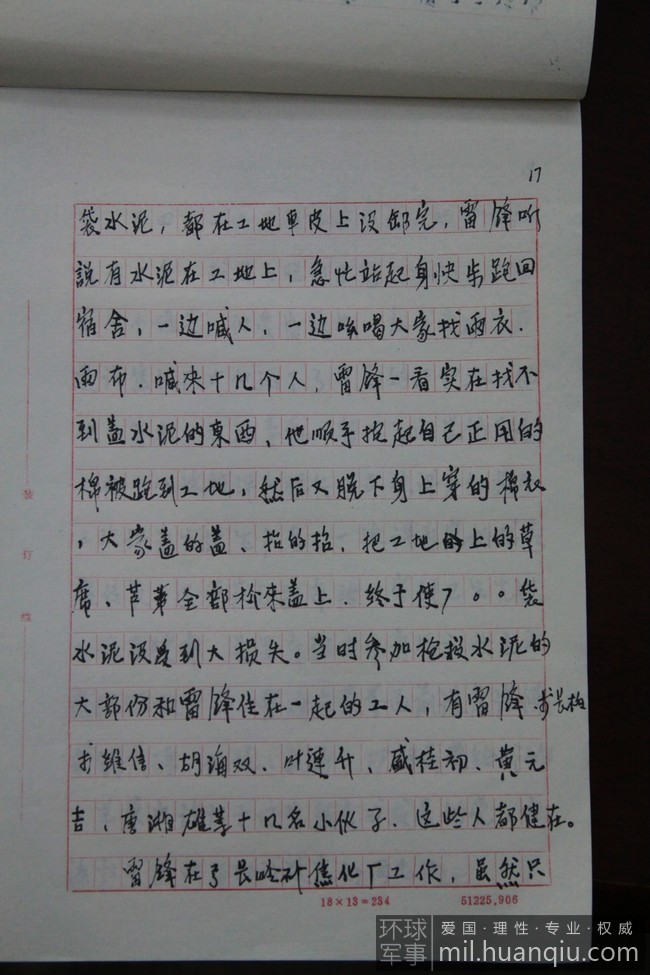 17
袋水泥，都在工地車皮上没卸完，雷锋听
説有水泥在工地上，急忙站起身快步跑回
宿舍，一边喊人，一边吆喝大家找雨衣．
雨布．喊来十几个人，雷锋一看实在找不
到盖水泥的東西，他顺手抱起自己正用的
棉被跑到工地，然后又脱下身上穿的棉衣
，大家盖的盖、抬的抬，把工地的上的草
席、芦苇全部检来盖上．终于使7００袋
水泥没受到大损失。当时参加枪救水泥的
大部份和雷锋住在一起的工人，有雷锋
维信、胡海双．叶連升、盛桂初、黄元
吉、唐湘雄等十几名小伙子．这些人都健在。
雷锋在弓長岭矿焦化厂工作，虽然只
装
订
线
18×13=234
51225,906
环球军事
爱国·理性·专业·权威
mil.huanqiu.com